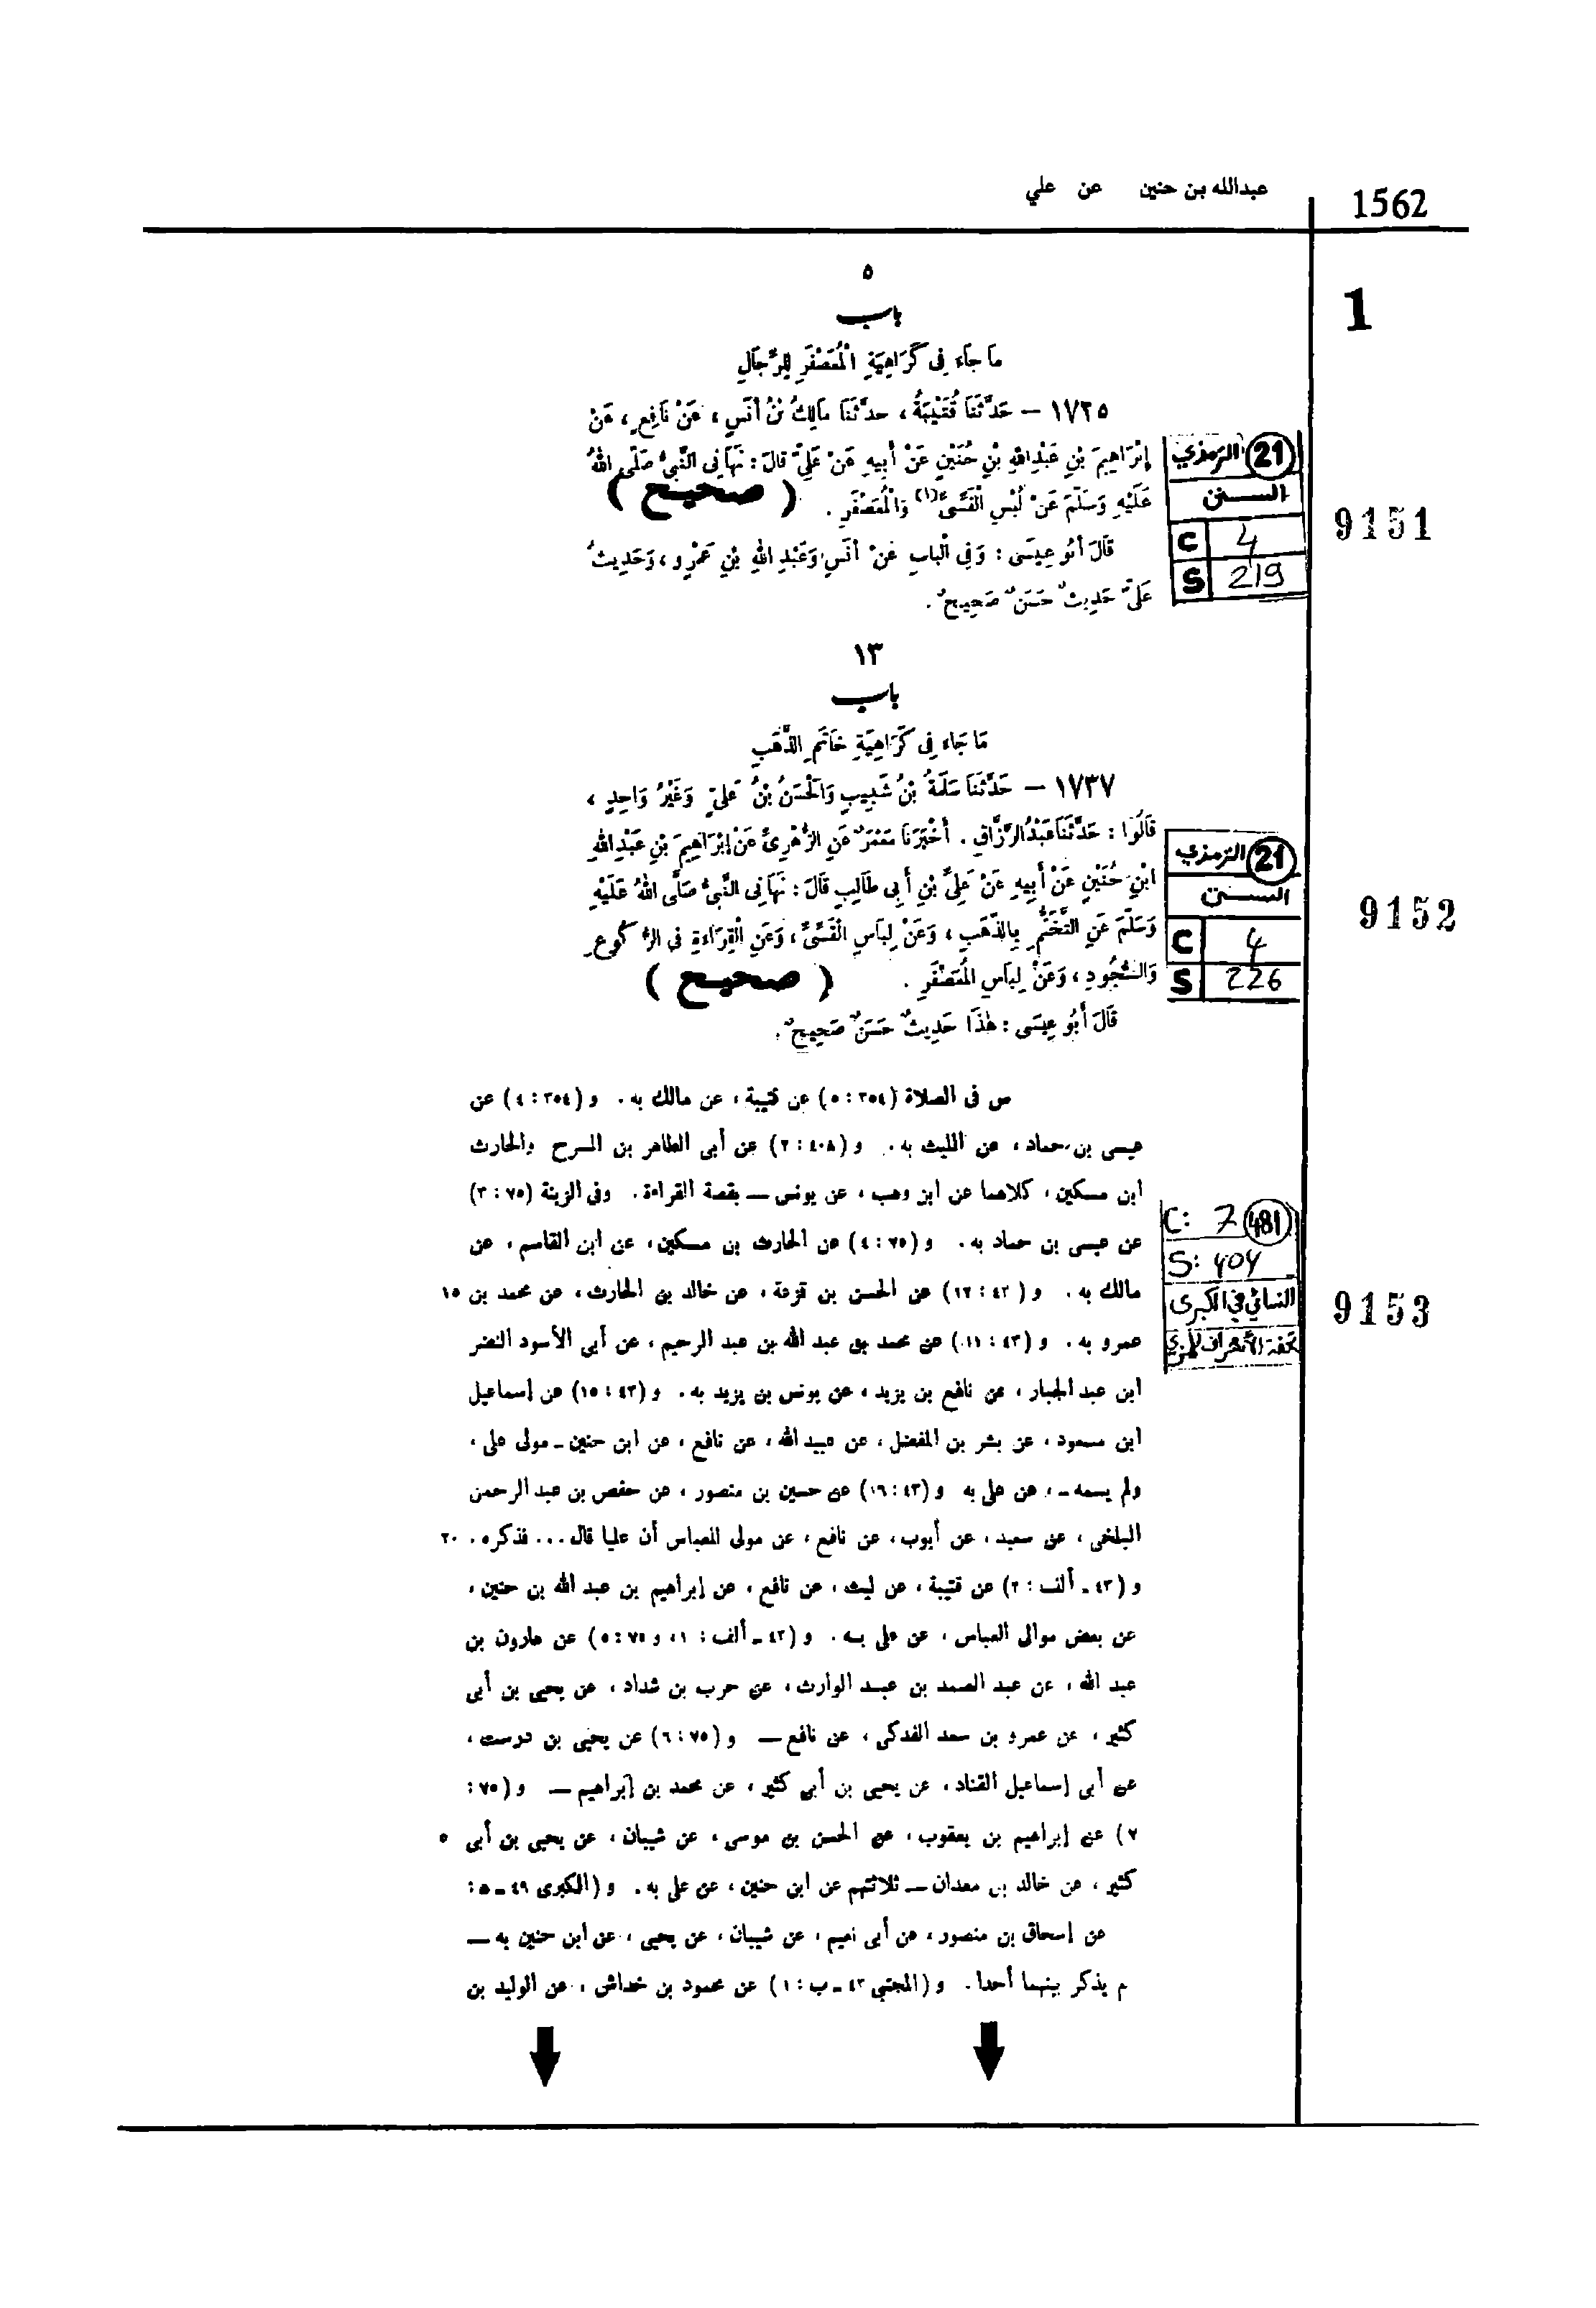 عبدالله بن حنين عن علي
1562
1
٥
باب
مَا جَاءَ فِى كَرَاهِيَةِ الْمُعَصْفَرِ لِلرِّجَالِ
١٧٢٥ – حَدَّثَنَا قُتَيْبَةُ ، حدثَنَا مَالِكُ بْنُ أَنَسٍ ، عَنْ نَافِعٍ ، عَنْ
إِبْرَاهِيمَ بْنِ عَبْدِ اللهِ بْنِ حُنَيْنٍ عَنْ أَبِيهِ عَنْ عَلِىٍّ قَالَ : نَهَانِى النَّبِىُّ صَلَّى اللهُ
عَلَيْهِ وَسَلَّمَ عَنْ لُبْسِ الْقَسِّىِّ (١) وَالْمُعَصْفَرِ . ( صحيح )
قَالَ أَبُو عِيسَى : وَفِى الْبَابِ عَنْ أَنَسٍ وَعَبْدِ اللهِ بْنِ عَمْرٍو ، وَحَدِيثُ
عَلِىٍّ حَدِيثٌ حَسَنٌ صَحِيحٌ .
21 الترمذي
السنن
C 4
S 219
9151
١٣
باب
مَا جَاءَ فِى كَرَاهِيَةِ خَاتَمِ الذَّهَبِ
١٧٣٧ – حَدَّثَنَا سَلَمَةُ بْنُ شَبِيبٍ وَالْحَسَنُ بْنُ عَلِىٍّ وَغَيْرُ وَاحِدٍ ،
قَالُوا : حَدَّثَنَا عَبْدُ الرَّزَّاقِ . أَخْبَرَنَا مَعْمَرٌ عَنِ الزُّهْرِىِّ عَنْ إِبْرَاهِيمَ بْنِ عَبْدِ اللهِ
ابْنِ حُنَيْنٍ عَنْ أَبِيهِ عَنْ عَلِىِّ بْنِ أَبِى طَالِبٍ قَالَ : نَهَانِى النَّبِىُّ صَلَّى اللهُ عَلَيْهِ
وَسَلَّمَ عَنِ التَّخَتُّمِ بِالذَّهَبِ ، وَعَنْ لِبَاسِ الْقَسِّىِّ ، وَعَنِ الْقِرَاءَةِ فِى الرُّكُوعِ
وَالسُّجُودِ ، وَعَنْ لِبَاسِ الْمُعَصْفَرِ . ( صحيح )
قَالَ أَبُو عِيسَى : هٰذَا حَدِيثٌ حَسَنٌ صَحِيحٌ .
21 الترمذي
السنن
C 4
S 226
9152
س فى الصلاة (٣٥٤ : ٥) عن قتيبة ، عن مالك به . و (٣٥٤ : ٤) عن
عيسى بن حماد ، عن الليث به . و (٤٠٨ : ٢) عن أبى الطاهر بن السرح والحارث
ابن مسكين ، كلاهما عن ابن وهب ، عن يونس — بقصة القراءة . وفى الزينة (٧٥ : ٣)
عن عيسى بن حماد به . و (٧٥ : ٤) عن الحارث بن مسكين ، عن ابن القاسم ، عن
مالك به . و (٤٣ : ١٢) عن الحسن بن قزعة ، عن خالد بن الحارث ، عن محمد بن ١٥
عمرو به . و (٤٣ : ١١) عن محمد بن عبد الله بن عبد الرحيم ، عن أبى الأسود النضر
ابن عبد الجبار ، عن نافع بن يزيد ، عن يونس بن يزيد به . و (٤٣ : ١٥) عن إسماعيل
ابن مسعود ، عن بشر بن المفضل ، عن عبيد الله ، عن نافع ، عن ابن حنين - مولى على ،
ولم يسمه - ، عن على به و (٤٣ : ١٦) عن حسين بن منصور ، عن حفص بن عبد الرحمن
البلخى ، عن سعيد ، عن أيوب ، عن نافع ، عن مولى للعباس أن عليا قال ... فذكره . ٢٠
و (٤٣ - ألف : ٢) عن قتيبة ، عن ليث ، عن نافع ، عن إبراهيم بن عبد الله بن حنين ،
عن بعض موالى العباس ، عن على به . و (٤٣ - ألف : ١ ، و ٧٥ : ٥) عن هارون بن
عبد الله ، عن عبد الصمد بن عبد الوارث ، عن حرب بن شداد ، عن يحيى بن أبى
كثير ، عن عمرو بن سعد الفدكى ، عن نافع — و (٧٥ : ٦) عن يحيى بن درست ،
عن أبى إسماعيل القناد ، عن يحيى بن أبى كثير ، عن محمد بن إبراهيم — و (٧٥ :
٧) عن إبراهيم بن يعقوب ، عن الحسن بن موسى ، عن شيبان ، عن يحيى بن أبى ٥
كثير ، عن خالد بن معدان — ثلاثتهم عن ابن حنين ، عن على به . و (الكبرى ٤٩ - ٥ :
عن إسحاق بن منصور ، عن أبى نعيم ، عن شيبان ، عن يحيى ، عن ابن حنين به —
م يذكر بينهما أحدا . و (المجتبى ٤٣ - ب : ١) عن محمود بن خداش ، عن الوليد بن
C: 7 481
S: 404
النسائي في الكبرى
تحفة الأشراف للمزي
9153